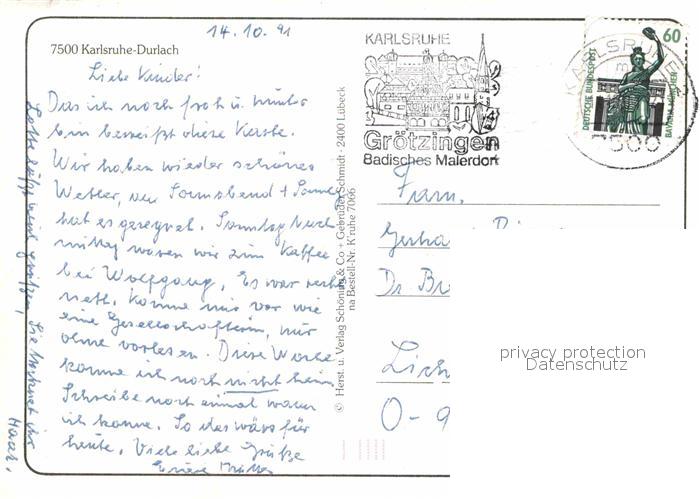 14.10.91
7500 Karlsruhe-Durlach
Liebe Kinder!
Das ich noch froh u. munter
bin beweißt diese Karte.
Wir haben wieder schönes
Wetter, nur Sonnabend + Sonntag
hat es geregnet. Sonntag Nach
mittag waren wir zum Kaffee
bei Wolfgang, Es war recht
nett. Komme mir vor wie
eine Gesellschafterin, nur
ohne vorlesen. Diese Woche
komme ich noch nicht heim
Schreibe noch einmal wann
ich komme. So das wärs für
heute. Viele liebe Grüße
Eure Mutter
Lotte läßt euch grüßen, Sie trocknet ihr
Haar.
© Herst. u. Verlag Schöning & Co + Gebrüder Schmidt · 2400 Lübeck
na Bestell-Nr. K'ruhe 7066
KARLSRUHE
Grötzingen
Badisches Malerdorf
KARLSRUHE
7500
60
DEUTSCHE BUNDESPOST
BAVARIA MÜNCHEN
Fam.
Gerha
Dr Br
Lich
O-9
privacy protection
Datenschutz